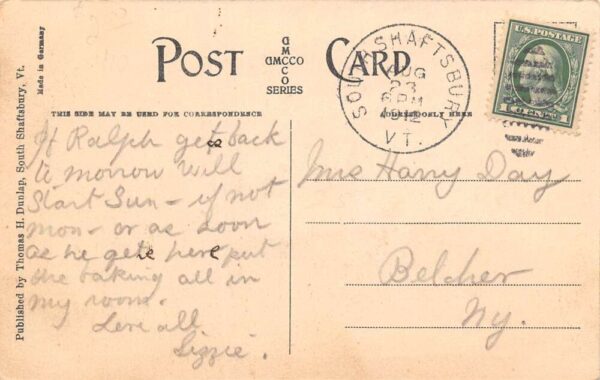 POST CARD
G
M
GMCCO
C
O
SERIES
SOUTH SHAFTSBURY
AUG
23
6 PM
1912
VT.
U.S. POSTAGE
1 CENT 1
THIS SIDE MAY BE USED FOR CORRESPONDENCE
ADDRESS ONLY HERE
Made in Germany
Published by Thomas H. Dunlap, South Shaftsbury, Vt.
If Ralph gets back
to morrow will
start Sun - if not
mon - or as soon
as he gets here put
the baking all in
my room.
Love all
Lizzie.
Mrs Harry Day
Belcher
Ny.